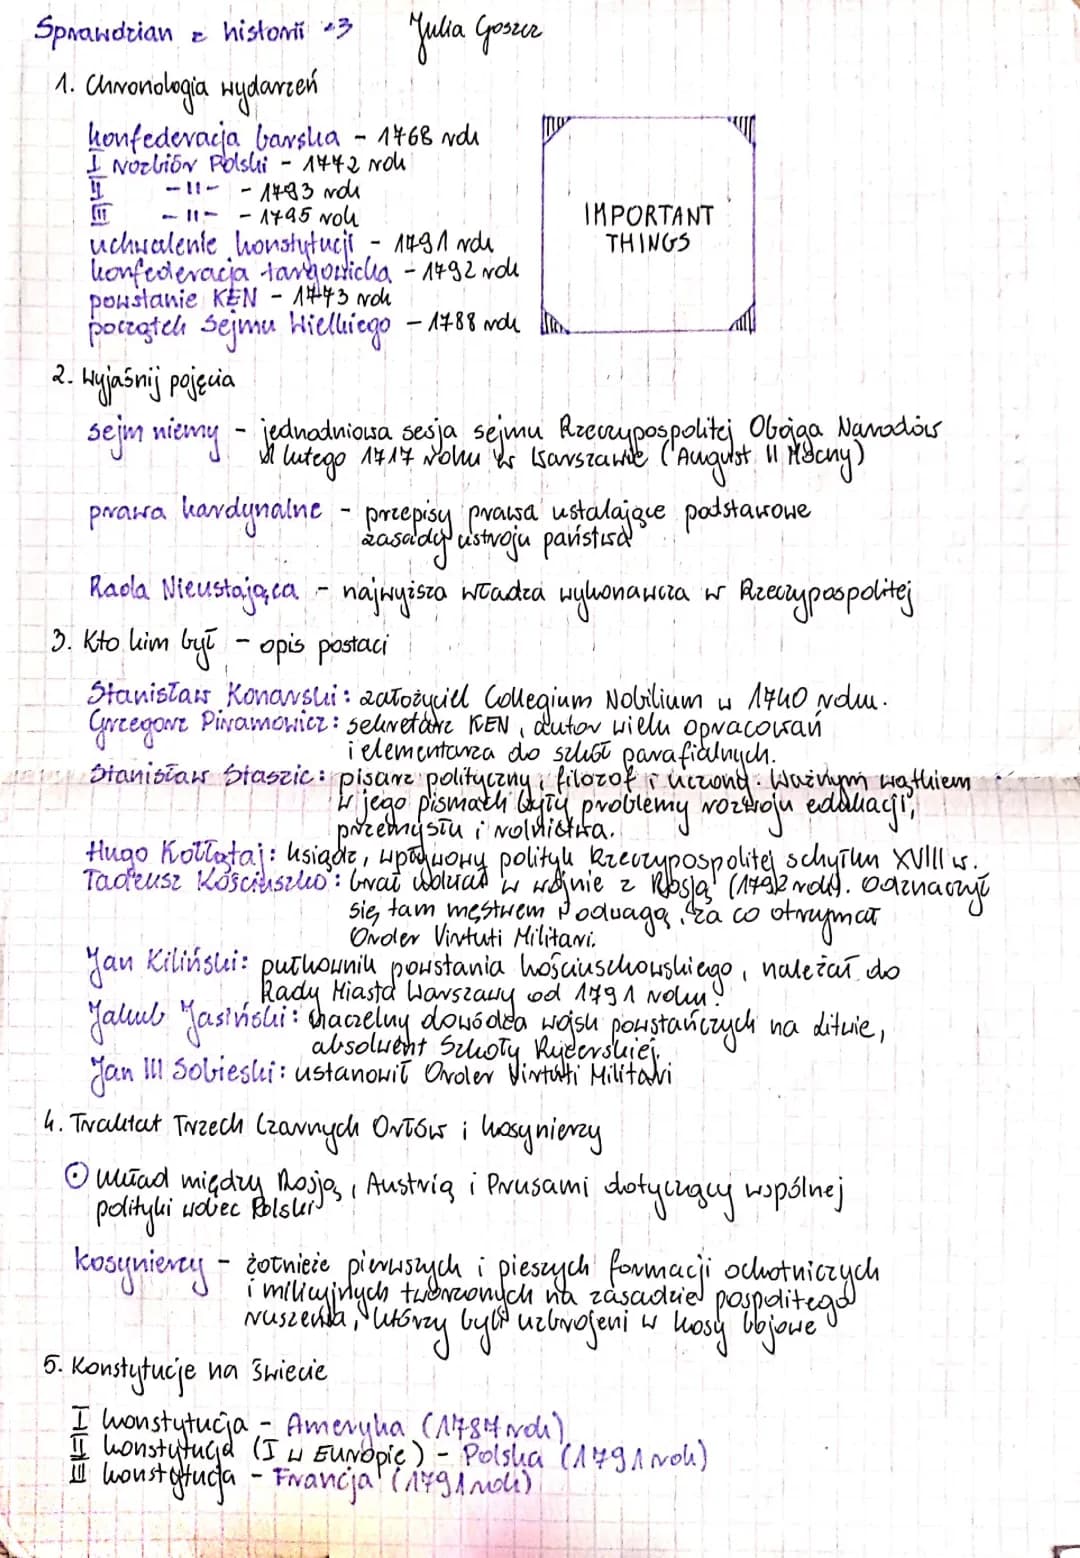 Sprawdzian z historii <3 Julia Goszcz
1. Chronologia wydarzeń
konfederacja barska - 1768 rok
I rozbiór Polski - 1772 rok
II -11- - 1793 rok
III -11- - 1795 rok
uchwalenie konstytucji - 1791 rok
konfederacja targowicka - 1792 rok
powstanie KEN - 1773 rok
początek Sejmu Wielkiego - 1788 rok
IMPORTANT
THINGS
2. Wyjaśnij pojęcia
sejm niemy - jednodniowa sesja sejmu Rzeczypospolitej Obojga Narodów
lutego 1717 roku w Warszawie (August II Mocny)
prawa kardynalne - przepisy prawa ustalające podstawowe
zasady ustroju państwa
Rada Nieustająca - najwyższa władza wykonawcza w Rzeczypospolitej
3. Kto kim był - opis postaci
Stanisław Konarski: założyciel Collegium Nobilium w 1740 roku.
Grzegorz Piramowicz: sekretarz KEN, autor wielu opracowań
i elementarza do szkół parafialnych.
Stanisław Staszic: pisarz polityczny, filozof i uczony. Ważnym wątkiem
w jego pismach były problemy rozwoju edukacji,
przemysłu i rolnictwa.
Hugo Kołłątaj: ksiądz, wpływowy polityk Rzeczypospolitej schyłku XVIII w.
Tadeusz Kościuszko: brał udział w wojnie z Rosją (1792 rok). Odznaczył
się tam męstwem i odwagą, za co otrzymał
Order Virtuti Militari.
Jan Kiliński: pułkownik powstania kościuszkowskiego, należał do
Rady Miasta Warszawy od 1791 roku.
Jakub Jasiński: naczelny dowódca wojsk powstańczych na Litwie,
absolwent Szkoły Rycerskiej.
Jan III Sobieski: ustanowił Order Virtuti Militari
4. Traktat Trzech Czarnych Orłów i kosynierzy
układ między Rosją, Austrią i Prusami dotyczący wspólnej
polityki wobec Polski
kosynierzy - żołnieże pierwszych i pieszych formacji ochotniczych
i milicyjnych tworzonych na zasadzie pospolitego
ruszenia, którzy byli uzbrojeni w kosy bojowe
5. Konstytucje na świecie
I konstytucja - Ameryka (1787 rok)
II konstytucja (I w Europie) - Polska (1791 rok)
III konstytucja - Francja (1791 rok)